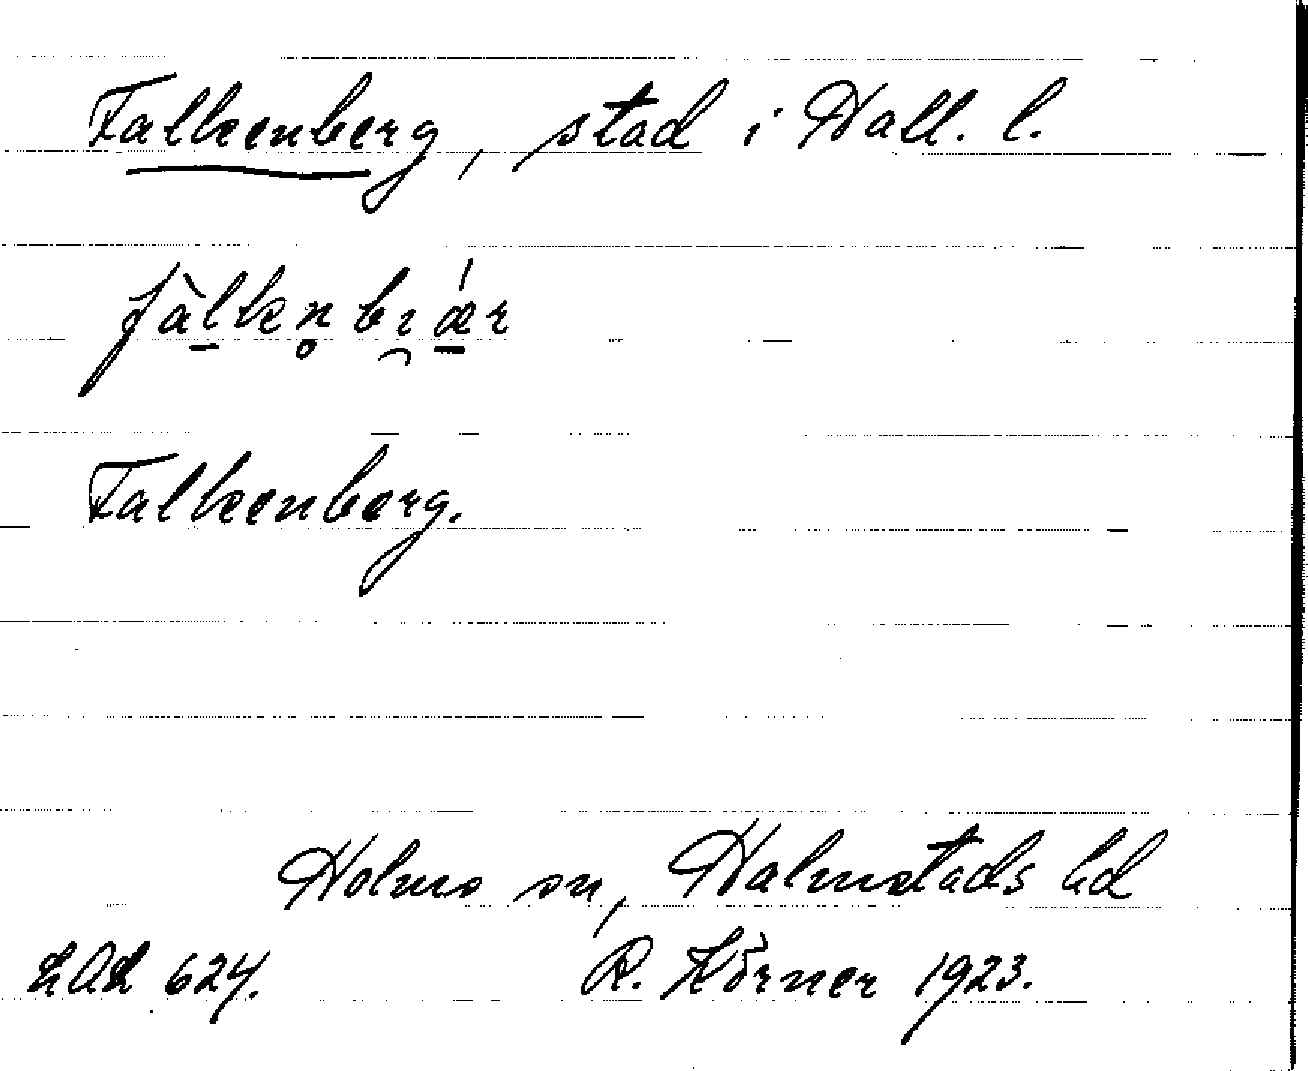 Falkenberg, stad i Hall. l.
fàlkn̥bı̯ǽr
Falkenberg.
Holms sn, Halmstads hd
LAL 624. R. Körner 1923.